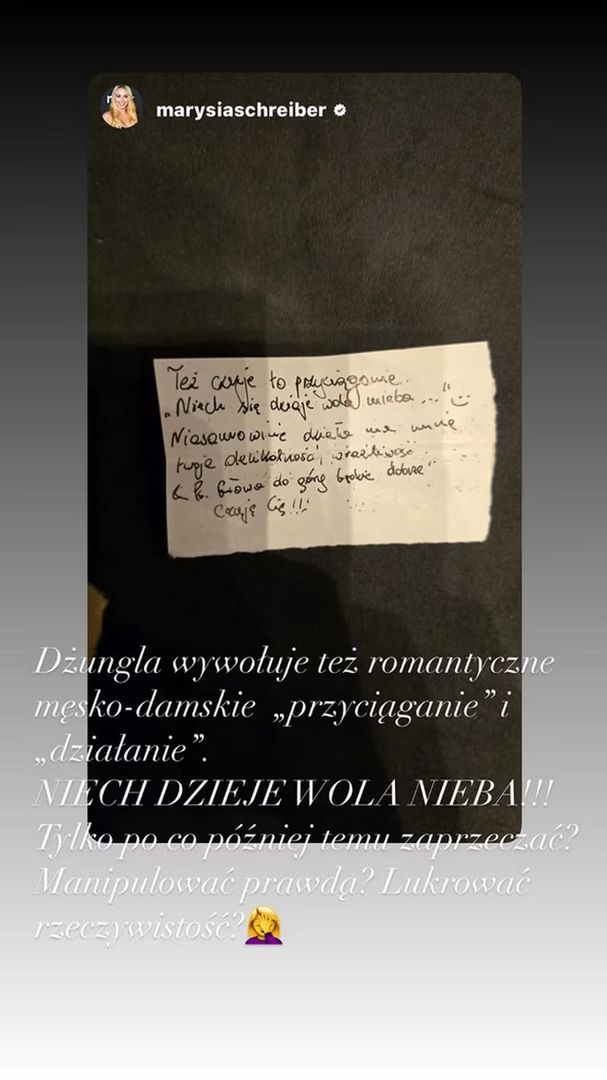 marysiaschreiber
Też czuję to przyciąganie.
„Niech się dzieje wola nieba ..."
Niesamowicie działa na mnie
twoja delikatność, wrażliwość.
Głowa do góry będzie dobrze"
Czuję Cię!!!
Dżungla wywołuje też romantyczne
męsko-damskie „przyciąganie” i
„działanie”.
NIECH DZIEJE WOLA NIEBA!!!
Tylko po co później temu zaprzeczać?
Manipulować prawdą? Lukrować
rzeczywistość?🤦‍♀️